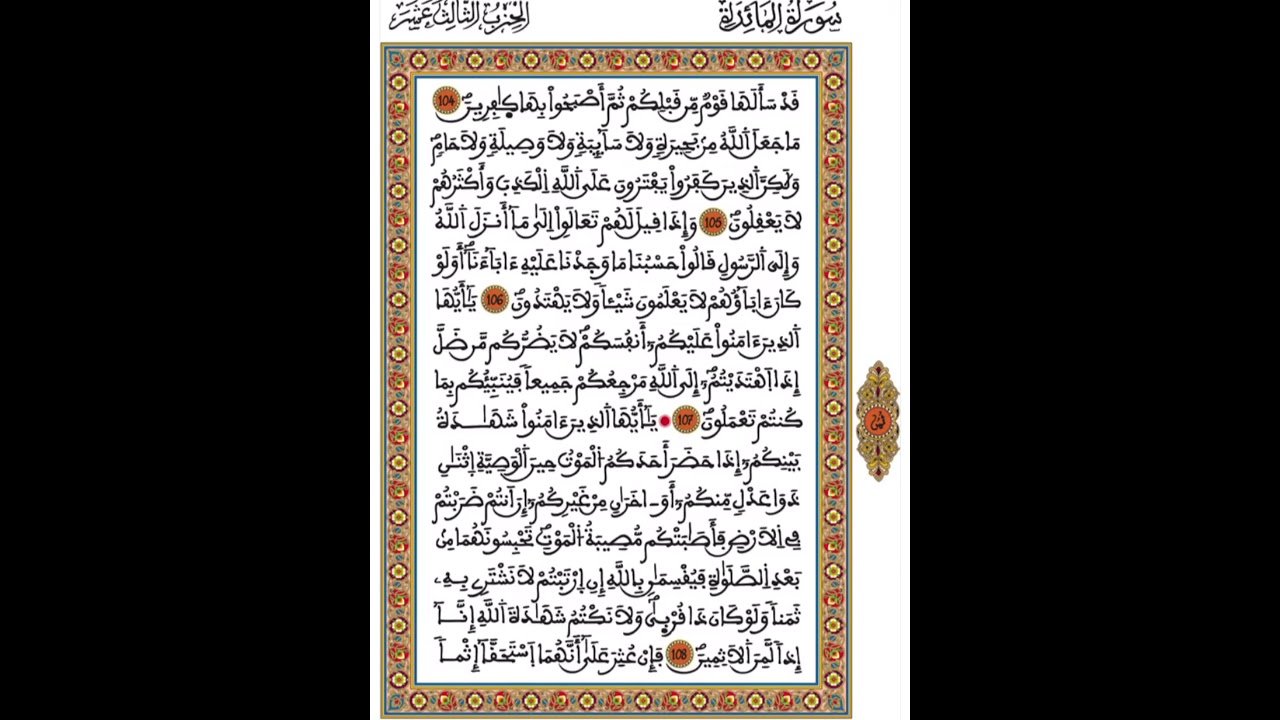 سُورَةُ الْمَائِدَةِ
الْحِزْبُ الثَّالِثَ عَشَرَ
قَدْ سَأَلَهَا قَوْمٌ مِّن قَبْلِكُمْ ثُمَّ أَصْبَحُواْ بِهَا كٰفِرِينَ 104
مَا جَعَلَ اَللَّهُ مِنۢ بَحِيرَةٖ وَلَا سَآئِبَةٖ وَلَا وَصِيلَةٖ وَلَا حَامٖ
وَلَٰكِنَّ اَلذِينَ كَفَرُواْ يَفْتَرُونَ عَلَى اَللَّهِ اِلْكَذِبَ وَأَكْثَرُهُمْ
لَا يَعْقِلُونَ 105 وَإِذَا قِيلَ لَهُمْ تَعَالَوِاْ اِلَىٰ مَآ أَنزَلَ اَللَّهُ
وَإِلَى اَلرَّسُولِ قَالُواْ حَسْبُنَا مَا وَجَدْنَا عَلَيْهِ ءَابَآءَنَآ أَوَلَوْ
كَانَ ءَابَآؤُهُمْ لَا يَعْلَمُونَ شَيْـٔاٗ وَلَا يَهْتَدُونَ 106 يَٰٓأَيُّهَا
اَلذِينَ ءَامَنُواْ عَلَيْكُمُۥٓ أَنفُسَكُمْ لَا يَضُرُّكُم مَّن ضَلَّ
إِذَا اَهْتَدَيْتُمُۥٓ إِلَى اَللَّهِ مَرْجِعُكُمْ جَمِيعاٗ فَيُنَبِّئُكُم بِمَا
كُنتُمْ تَعْمَلُونَ 107 يَٰٓأَيُّهَا اَلذِينَ ءَامَنُواْ شَهَٰدَةُ
بَيْنِكُمُۥٓ إِذَا حَضَرَ أَحَدَكُمُ اُلْمَوْتُ حِينَ اَلْوَصِيَّةِ اِثْنَٰنِ
ذَوَا عَدْلٖ مِّنكُمُۥٓ أَوَ اٰخَرَٰنِ مِنْ غَيْرِكُمُۥٓ إِنَ اَنتُمْ ضَرَبْتُمْ
فِے اِلَارْضِ فَأَصَٰبَتْكُم مُّصِيبَةُ اُلْمَوْتِ تَحْبِسُونَهُمَا مِنۢ
بَعْدِ اِلصَّلَوٰةِ فَيُقْسِمَٰنِ بِاللَّهِ إِنِ اِرْتَبْتُمْ لَا نَشْتَرِے بِهِۦ
ثَمَناٗ وَلَوْ كَانَ ذَا قُرْبٰۭى وَلَا نَكْتُمُ شَهَٰدَةَ اَللَّهِ إِنَّآ
إِذاٗ لَّمِنَ اَلَاثِمِينَ 108 فَإِنْ عُثِرَ عَلَىٰٓ أَنَّهُمَا اَسْتَحَقَّآ إِثْماٗ
ثمن